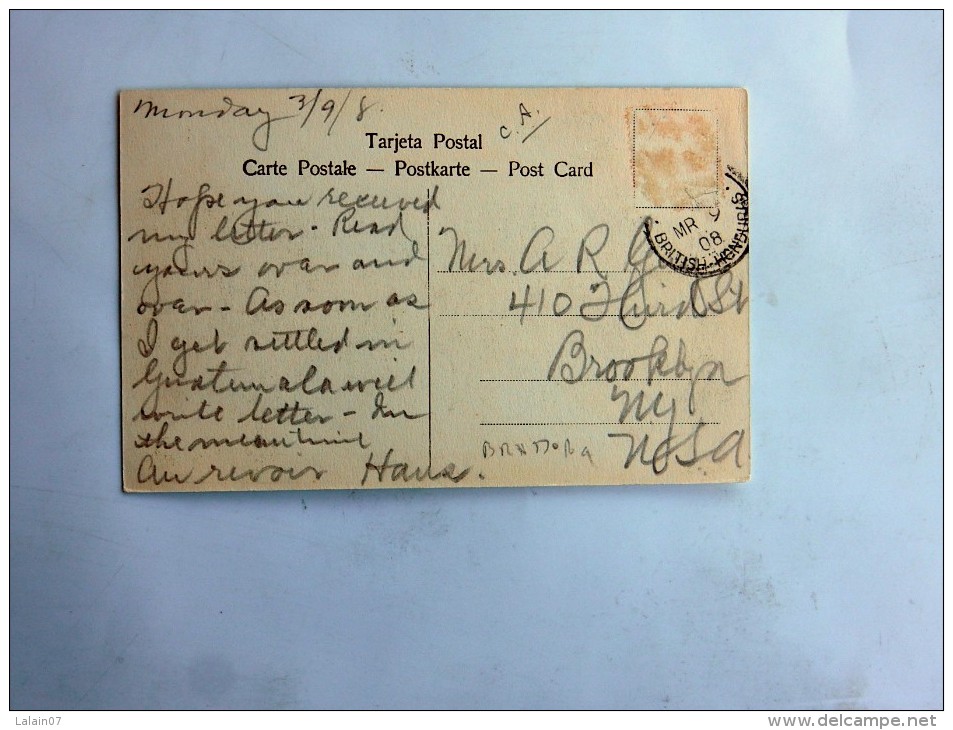 Monday 3/9/8.
C.A./
Tarjeta Postal
Carte Postale — Postkarte — Post Card
MR 9
08
BRITISH-HONDURAS.
Hope you received
my letter - Read
yours over and
over - As soon as
I get settled in
Guatemala will
write letter - In
the meantime
Au revoir Hans.
Mrs. A R
410 Third St
Brooklyn
NY
USA
Lalain07
www.delcampe.net